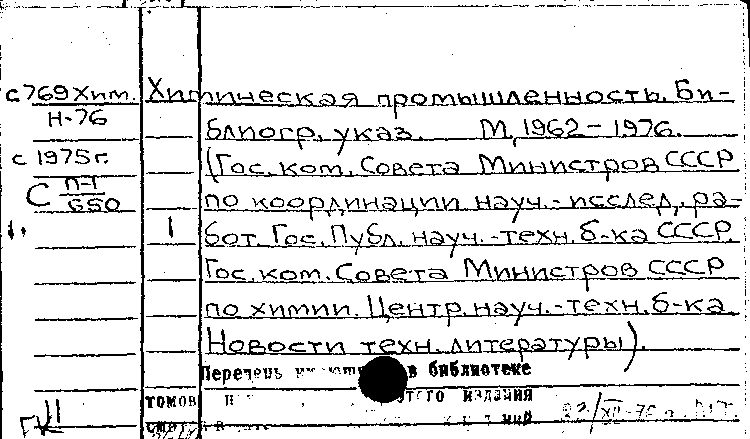 с 769 Хим.
Н-76
с 1975 г.
С П-1
650
Химическая промышленность. Би-
блиогр. указ. М., 1962 - 1976.
(Гос. ком. Совета Министров СССР
по координации науч.-исслед. ра-
1
бот. Гос. Публ. науч.-техн. б-ка СССР.
Гос. ком. Совета Министров СССР
по химии. Центр. науч.-техн. б-ка
Новости техн. литературы).
Перечень в библиотеке
томов этого издания